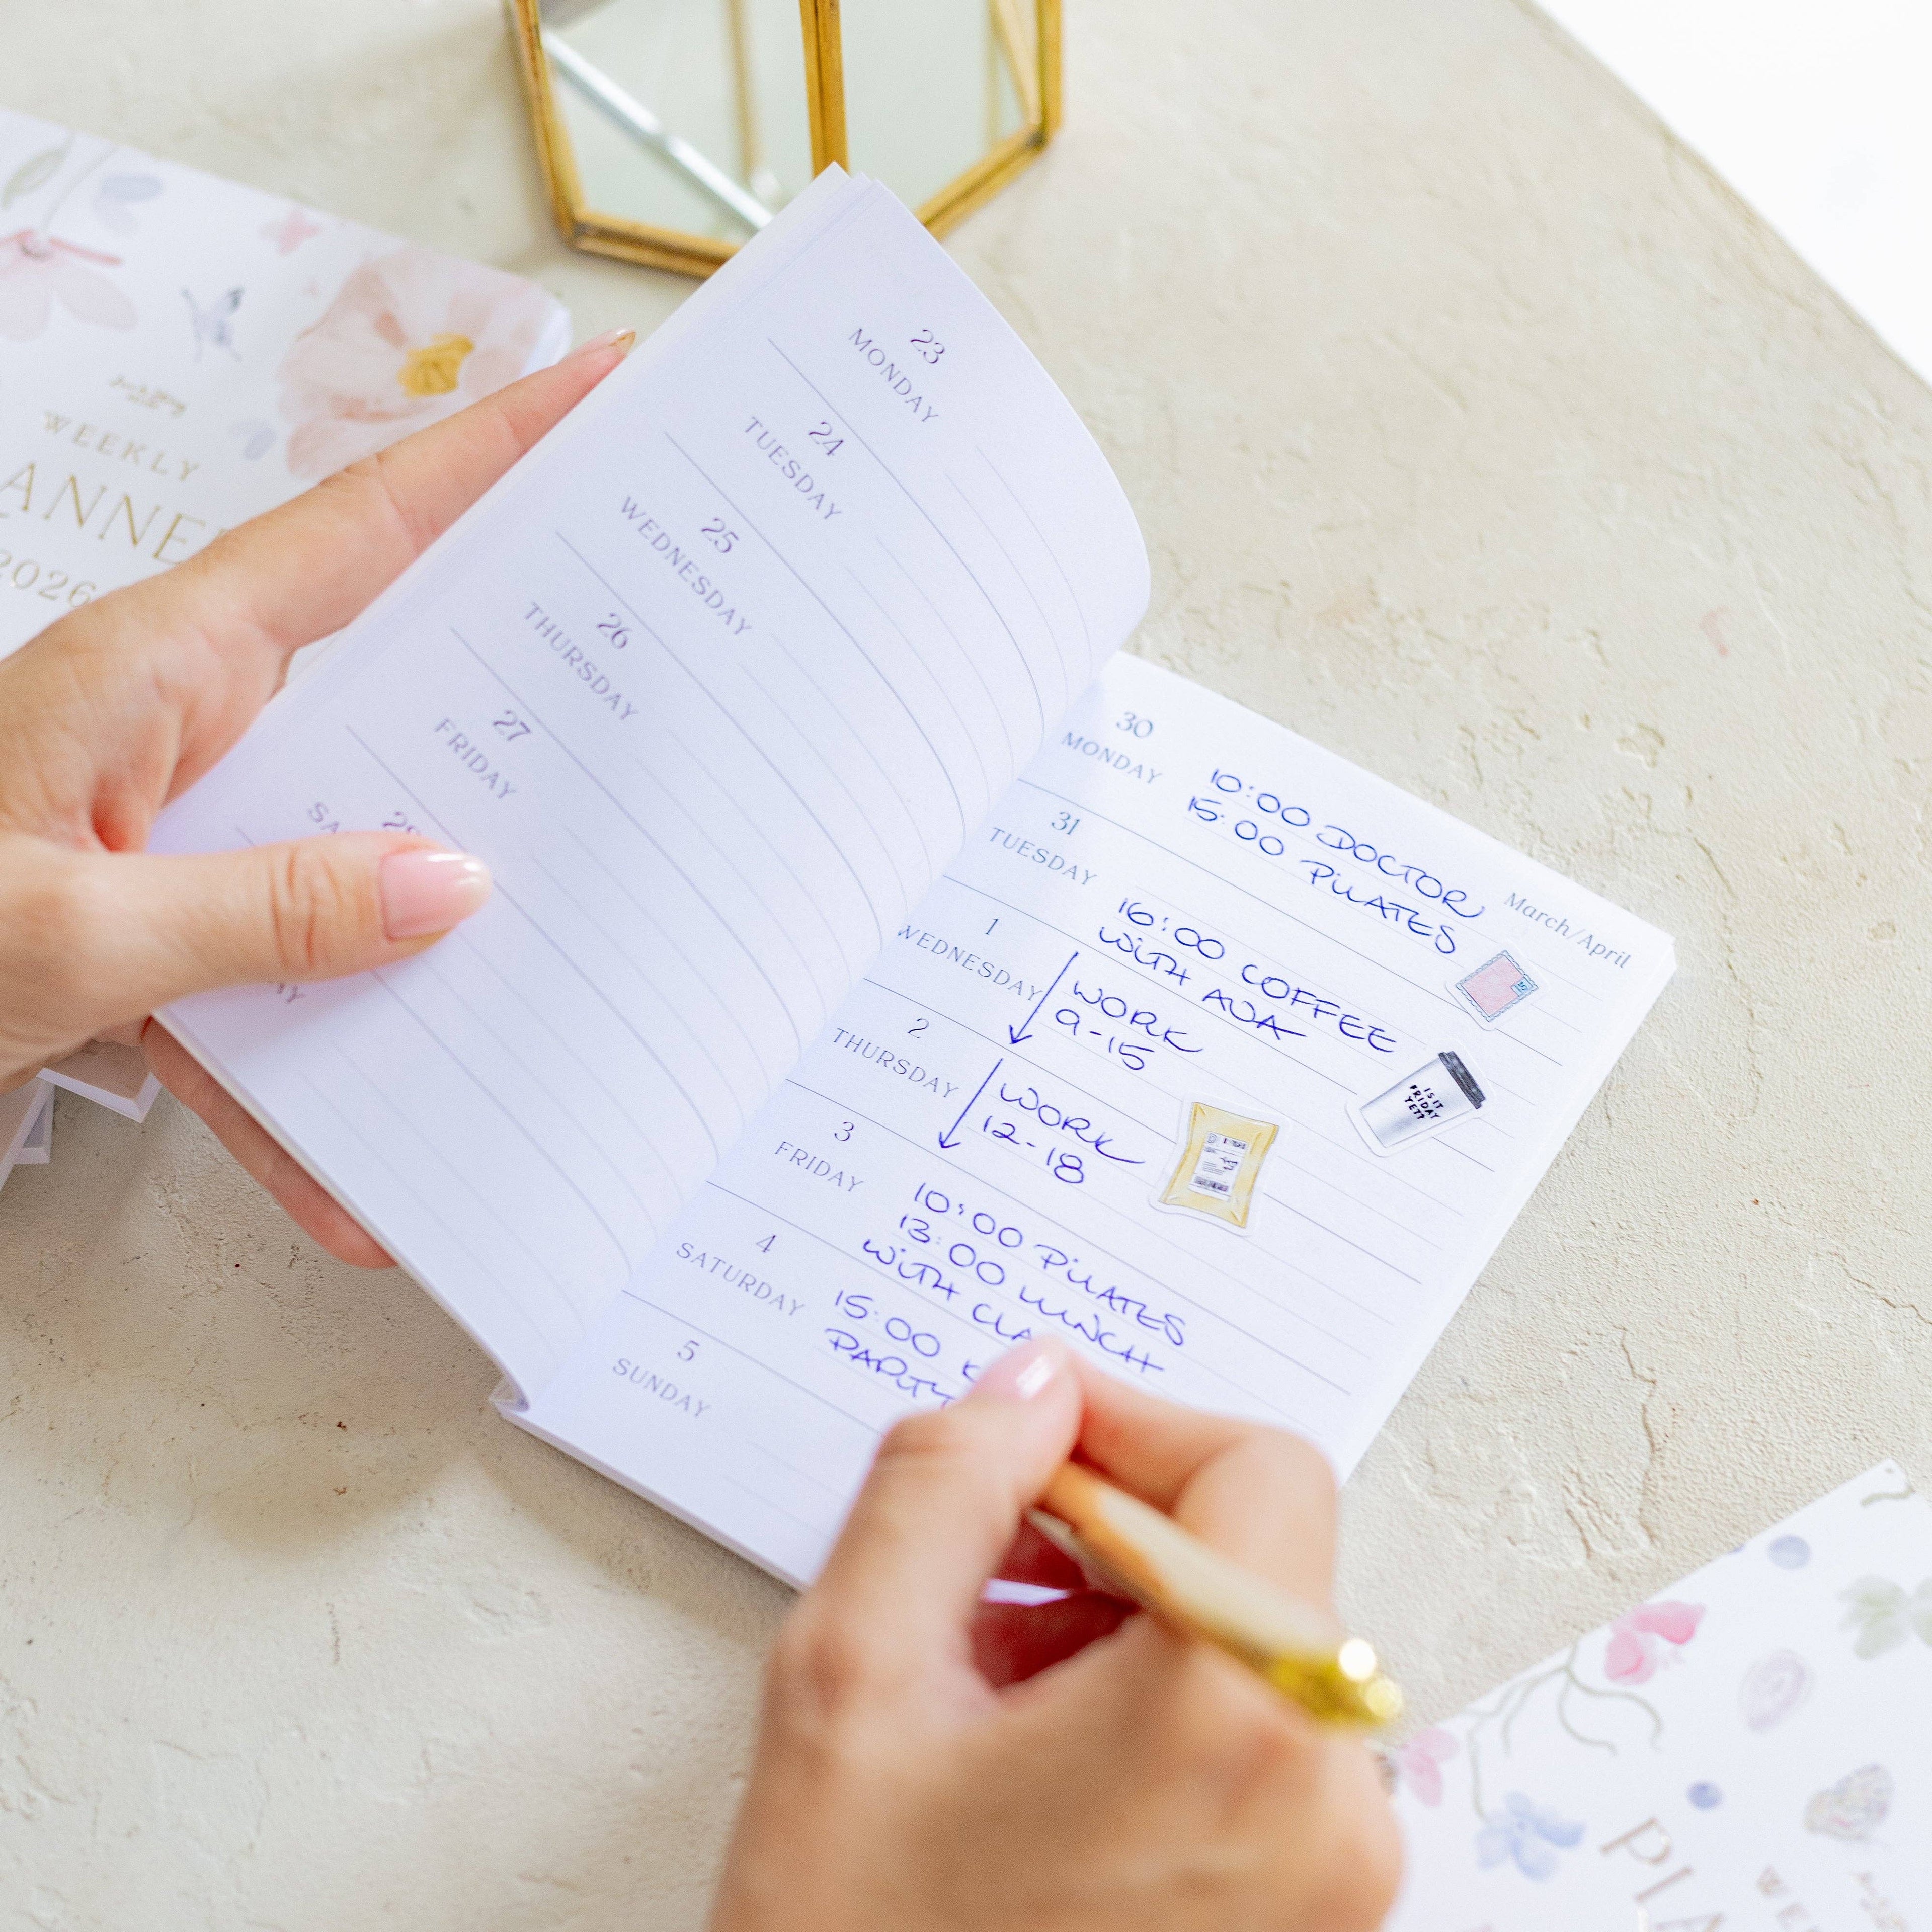 WEEKLY
2026
23
MONDAY
24
TUESDAY
25
WEDNESDAY
26
THURSDAY
27
FRIDAY
March/April
30
MONDAY
10:00 DOCTOR
15:00 PILATES
31
TUESDAY
16:00 COFFEE
WITH AVA
1
WEDNESDAY
WORK
9-15
2
THURSDAY
WORK
12-18
3
FRIDAY
10:00 PILATES
13:00 LUNCH
WITH
4
SATURDAY
15:00
PARTY
5
SUNDAY
IS IT
FRIDAY
YET?